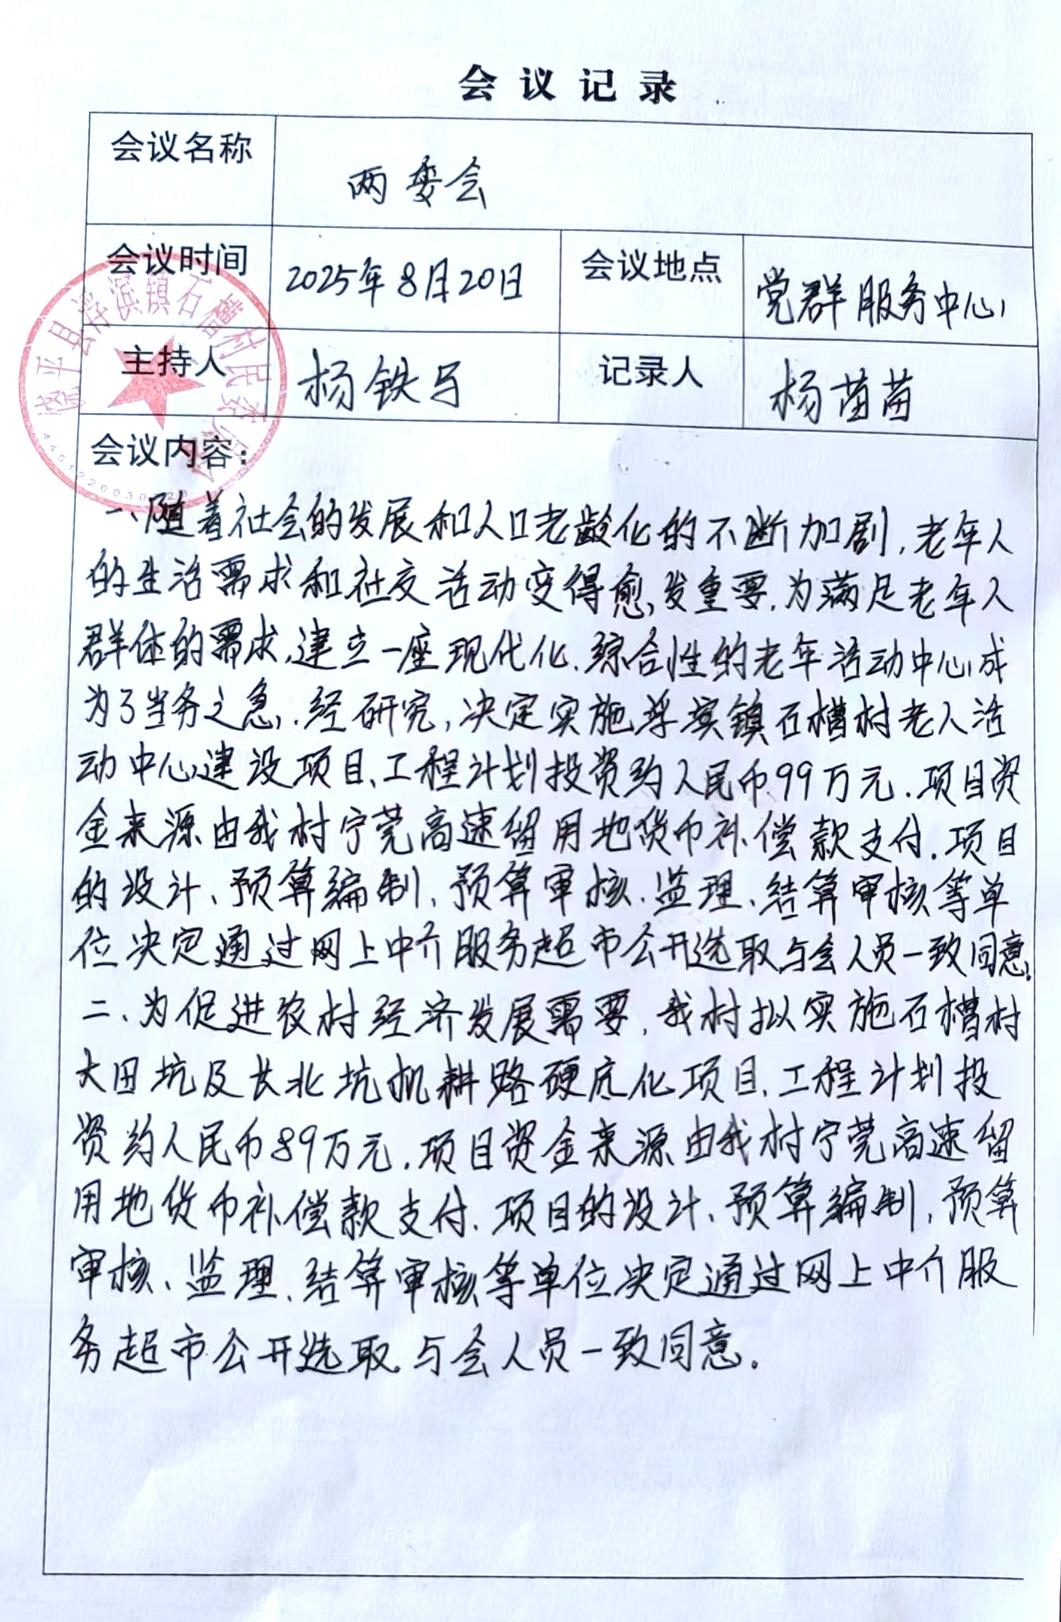 会议记录
会议名称 两委会
会议时间 2025年8月20日 会议地点 党群服务中心
主持人 杨铁弓 记录人 杨苗苗
饶平县浮滨镇石槽村民委员会
会议内容：
一、随着社会的发展和人口老龄化的不断加剧，老年人
的生活需求和社交活动变得愈发重要，为满足老年人
群体的需求，建立一座现代化、综合性的老年活动中心成
为了当务之急，经研究，决定实施浮滨镇石槽村老人活
动中心建设项目，工程计划投资约人民币99万元，项目资
金来源由我村宁莞高速留用地货币补偿款支付，项目
的设计、预算编制，预算审核、监理、结算审核等单
位决定通过网上中介服务超市公开选取，与会人员一致同意。
二、为促进农村经济发展需要，我村拟实施石槽村
大田坑及长北坑机耕路硬底化项目，工程计划投
资约人民币89万元，项目资金来源由我村宁莞高速留
用地货币补偿款支付，项目的设计、预算编制，预算
审核、监理、结算审核等单位决定通过网上中介服
务超市公开选取，与会人员一致同意。